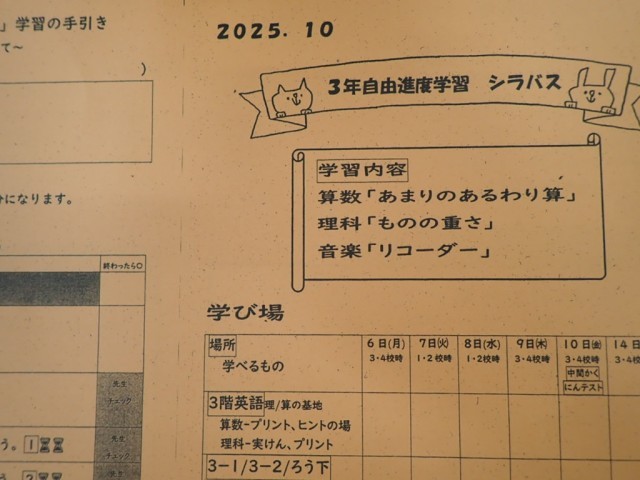 」学習の手引き
て～
)
分になります。
終わったら○
先生
チェック
う。1
先生
チェック
う。2
2025. 10
3年自由進度学習 シラバス
学習内容
算数「あまりのあるわり算」
理科「ものの重さ」
音楽「リコーダー」
学び場
場所 6日(月) 7日(火) 8日(水) 9日(木) 10日(金) 14日
学べるもの 3・4校時 1・2校時 1・2校時 3・4校時 3・4校時 3・4
中間かくにんテスト
3階英語 理/算の基地
算数-プリント、ヒントの場
理科-実けん、プリント
3-1/3-2/ろう下